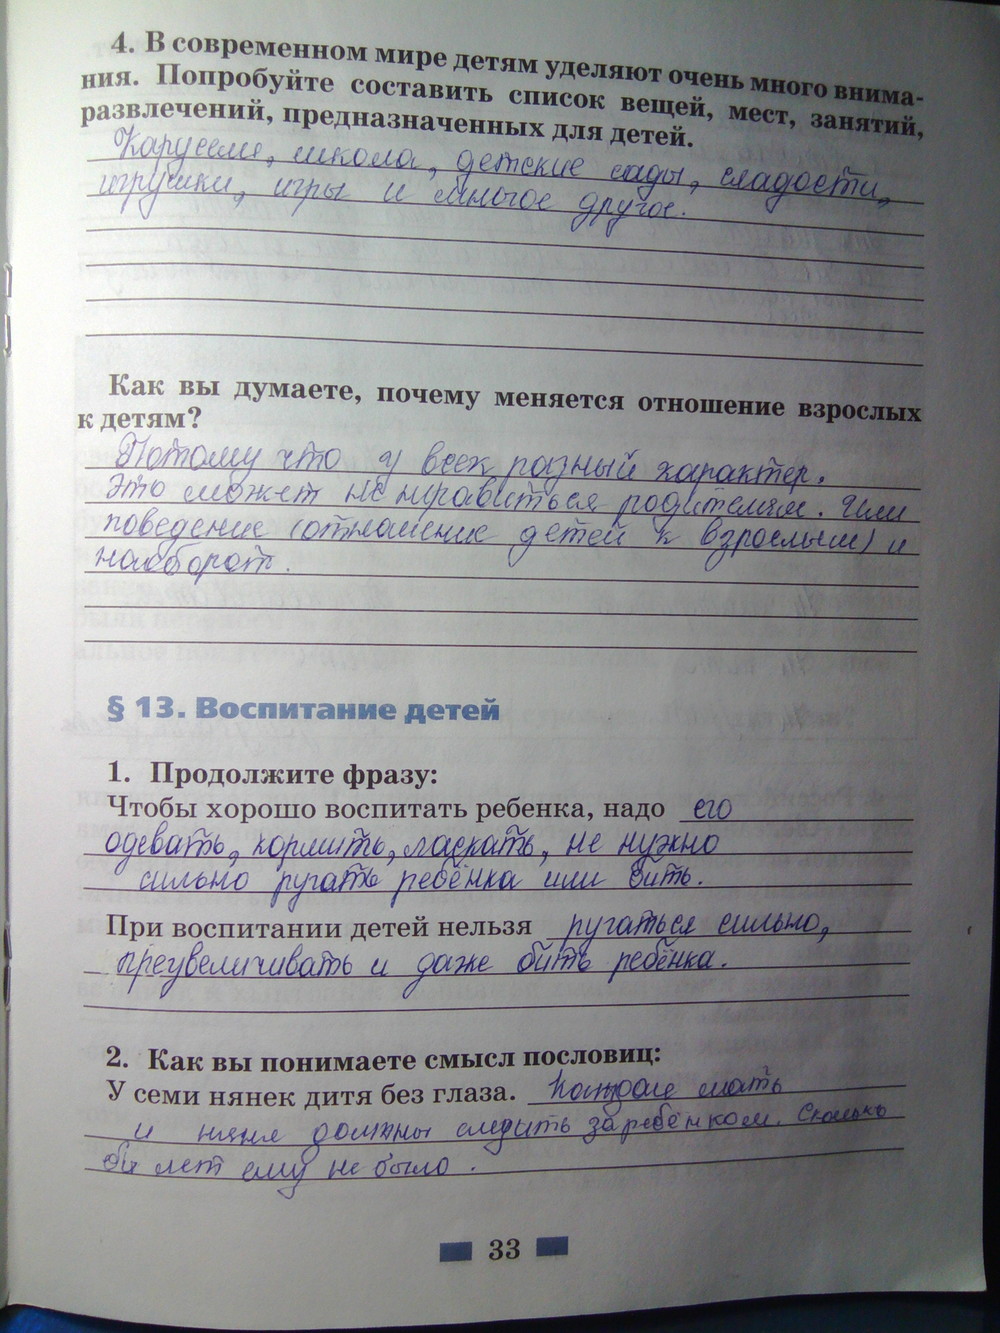 4. В современном мире детям уделяют очень много внима-
ния. Попробуйте составить список вещей, мест, занятий,
развлечений, предназначенных для детей.
Карусели, школа, детские сады, сладости,
игрушки, игры и многое другое.
Как вы думаете, почему меняется отношение взрослых
к детям?
Потому что у всех разный характер.
Это может не нравиться родителям. Или
поведение (отношение детей к взрослым) и
наоборот.
§ 13. Воспитание детей
1. Продолжите фразу:
Чтобы хорошо воспитать ребенка, надо его
одевать, кормить, ласкать, не нужно
сильно ругать ребёнка или бить.
При воспитании детей нельзя ругаться сильно,
преувеличивать и даже бить ребёнка.
2. Как вы понимаете смысл пословиц:
У семи нянек дитя без глаза. Каждые мать
и няня должны следить за ребёнком. Сколько
бы лет ему не было.
33